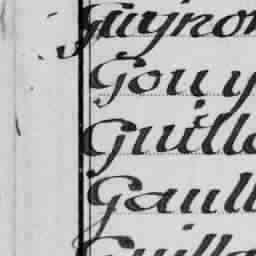 Guynon
Gouy
Guillo
Gaull
Guille